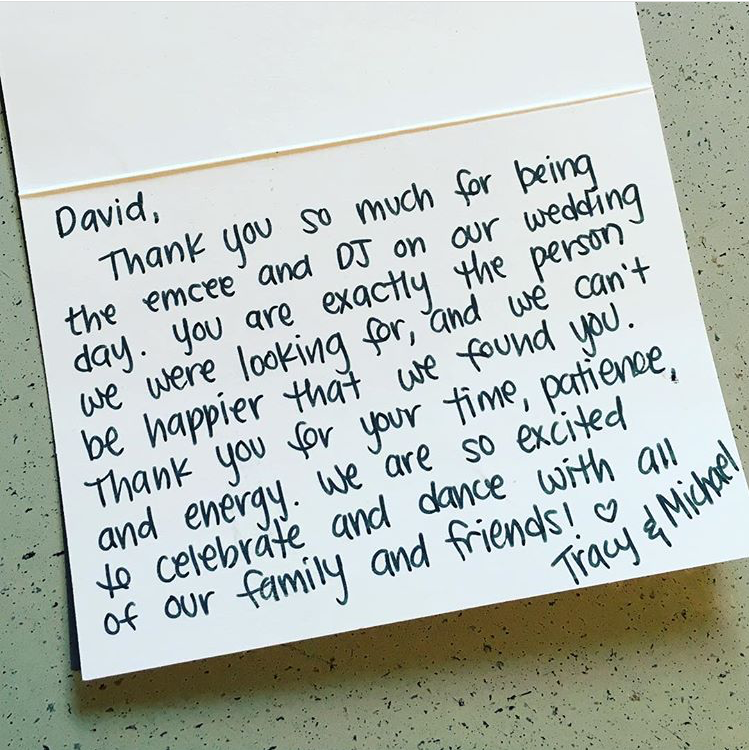 David,
Thank you so much for being
the emcee and DJ on our wedding
day. You are exactly the person
we were looking for, and we can't
be happier that we found you.
Thank you for your time, patience,
and energy. We are so excited
to celebrate and dance with all
of our family and friends! ♡
Tracy & Michael